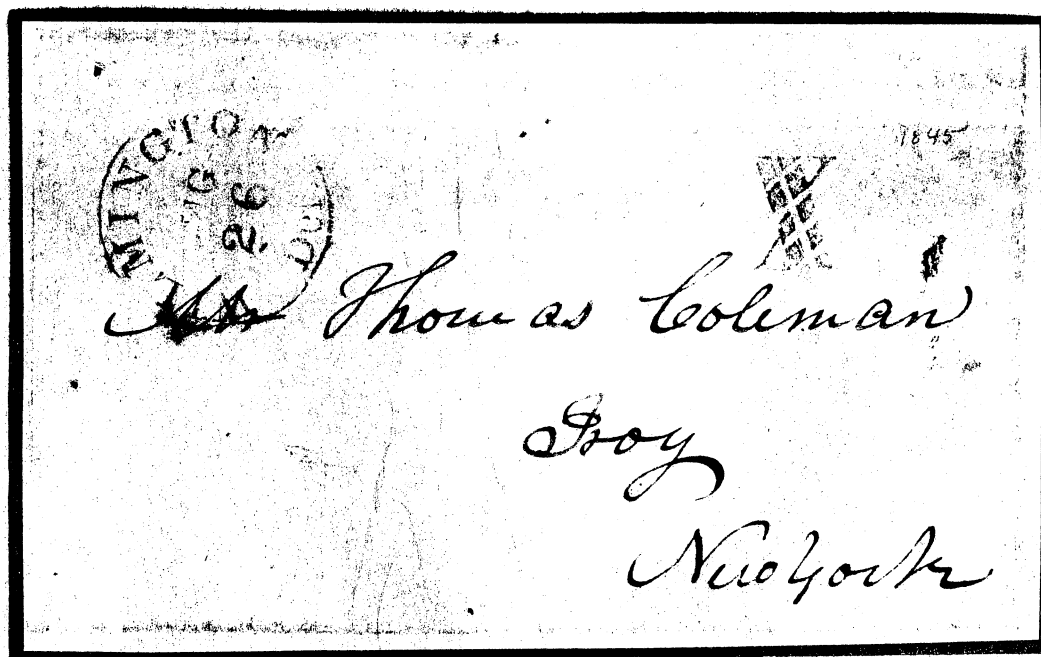 MINGTON
26
1845
X
Thomas Coleman
Troy
New York